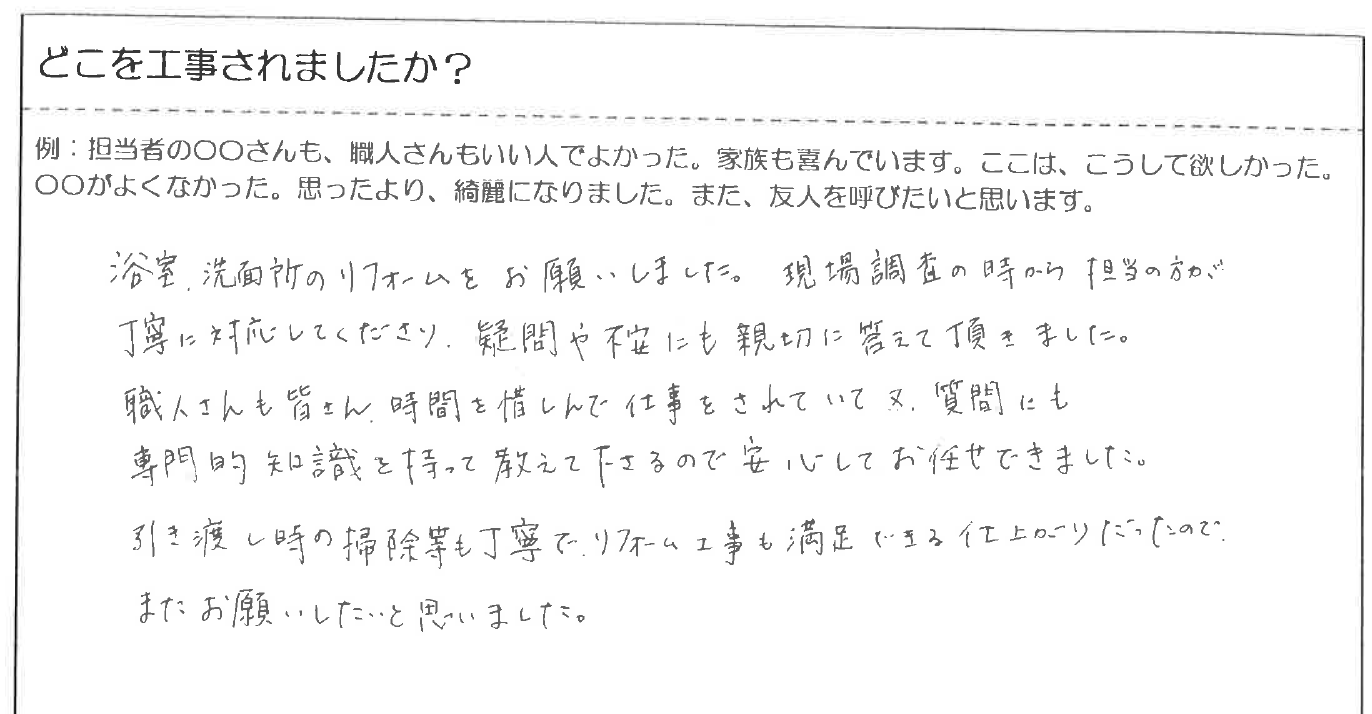 どこを工事されましたか？
例：担当者の〇〇さんも、職人さんもいい人でよかった。家族も喜んでいます。ここは、こうして欲しかった。
〇〇がよくなかった。思ったより、綺麗になりました。また、友人を呼びたいと思います。
浴室、洗面所のリフォームをお願いしました。現場調査の時から担当の方が
丁寧に対応してくださり、疑問や不安にも親切に答えて頂きました。
職人さんも皆さん、時間を惜しんで仕事をされていて又、質問にも
専門的知識を持って教えて下さるので安心してお任せできました。
引き渡し時の掃除等も丁寧で、リフォーム工事も満足できる仕上がりだったので、
またお願いしたいと思いました。